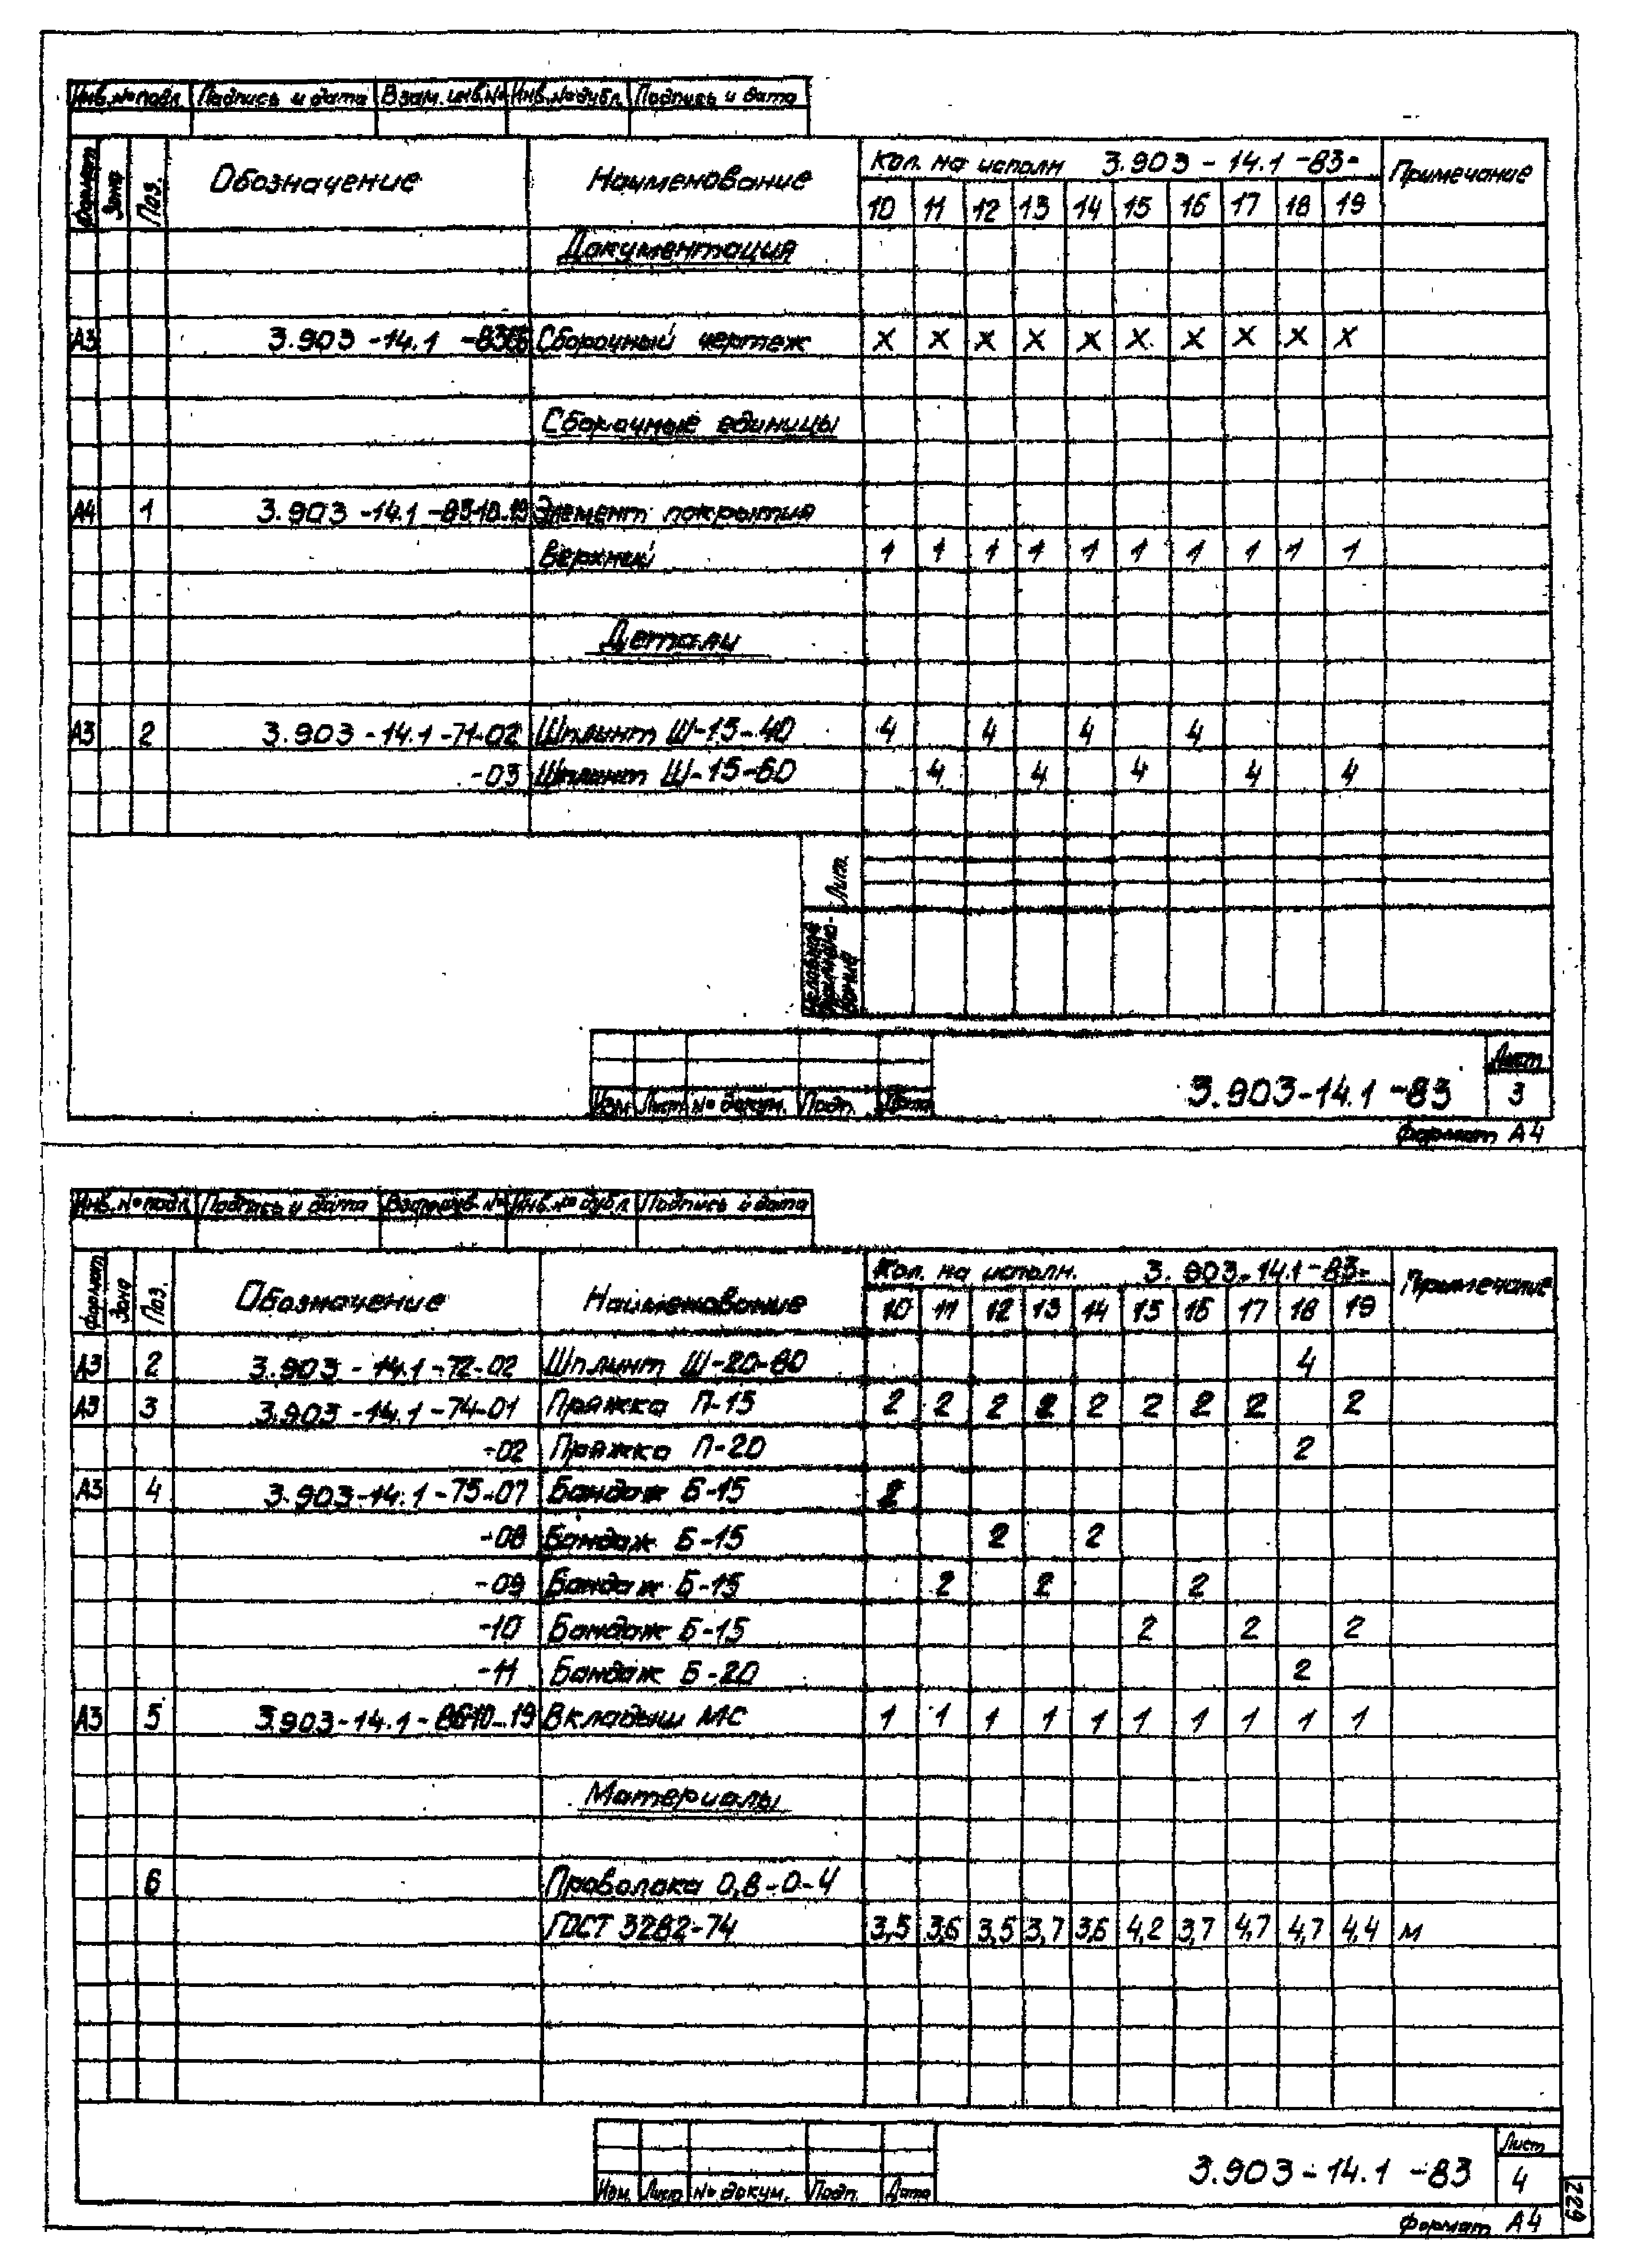 Инв. № подл. Подпись и дата Взам. инв. № Инв. № дубл. Подпись и дата
Формат Зона Поз. Обозначение Наименование Кол. на исполн 3.903 - 14.1 -83- Примечание
10 11 12 13 14 15 16 17 18 19
Документация
А3 3.903 -14.1 -83СБ Сборочный чертеж х х х х х х х х х х
Сборочные единицы
А4 1 3.903 -14.1 -85-10..19 Элемент покрытия
верхний 1 1 1 1 1 1 1 1 1 1
Детали
А3 2 3.903 -14.1 -71-02 Шплинт Ш-15-40 4 4 4 4
-03 Шплинт Ш-15-60 4 4 4 4 4
Лит.
Изм Лист № докум. Подп. Дата 3.903-14.1 -83 Лист 3
Формат А4
Инв. № подл Подпись и дата Взам. инв. № Инв. № дубл. Подпись и дата
Формат Зона Поз. Обозначение Наименование Кол. на исполн. 3. 903-14.1-83- Примечание
10 11 12 13 14 15 16 17 18 19
А3 2 3.903 - 14.1 -72-02 Шплинт Ш-20-80 4
А3 3 3.903 -14.1 -74-01 Пряжка П-15 2 2 2 2 2 2 2 2 2
-02 Пряжка П-20 2
А3 4 3.903-14.1 -75-07 Бандаж Б-15 2
-08 Бандаж Б-15 2 2
-09 Бандаж Б-15 2 2 2
-10 Бандаж Б-15 2 2 2
-11 Бандаж Б-20 2
А3 5 3.903-14.1 - 86-10..19 Вкладыш МС 1 1 1 1 1 1 1 1 1 1
Материалы
6 Проволока 0,8-0-4
ГОСТ 3282-74 3,5 3,6 3,5 3,7 3,6 4,2 3,7 4,7 4,7 4,4 м
Изм. Лист № докум. Подп. Дата 3.903-14.1 -83 Лист 4
Формат А4
229